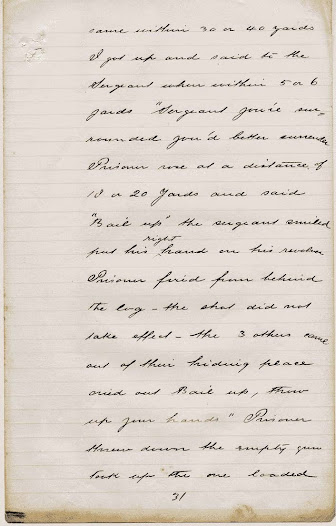 came within 30 or 40 yards
I got up and said to the
Sergeant when within 5 or 6
yards "Sergeant you're sur-
rounded you'd better surrender
Prisoner rose at a distance of
18 or 20 Yards and said
"Bail up" the sergeant smiled
right
put his hand on his revolver
Prisoner fired from behind
the log - the shot did not
take effect - the 3 others came
out of their hiding place
cried out Bail up, throw
up your hands" Prisoner
threw down the empty gun
took up the one loaded
31